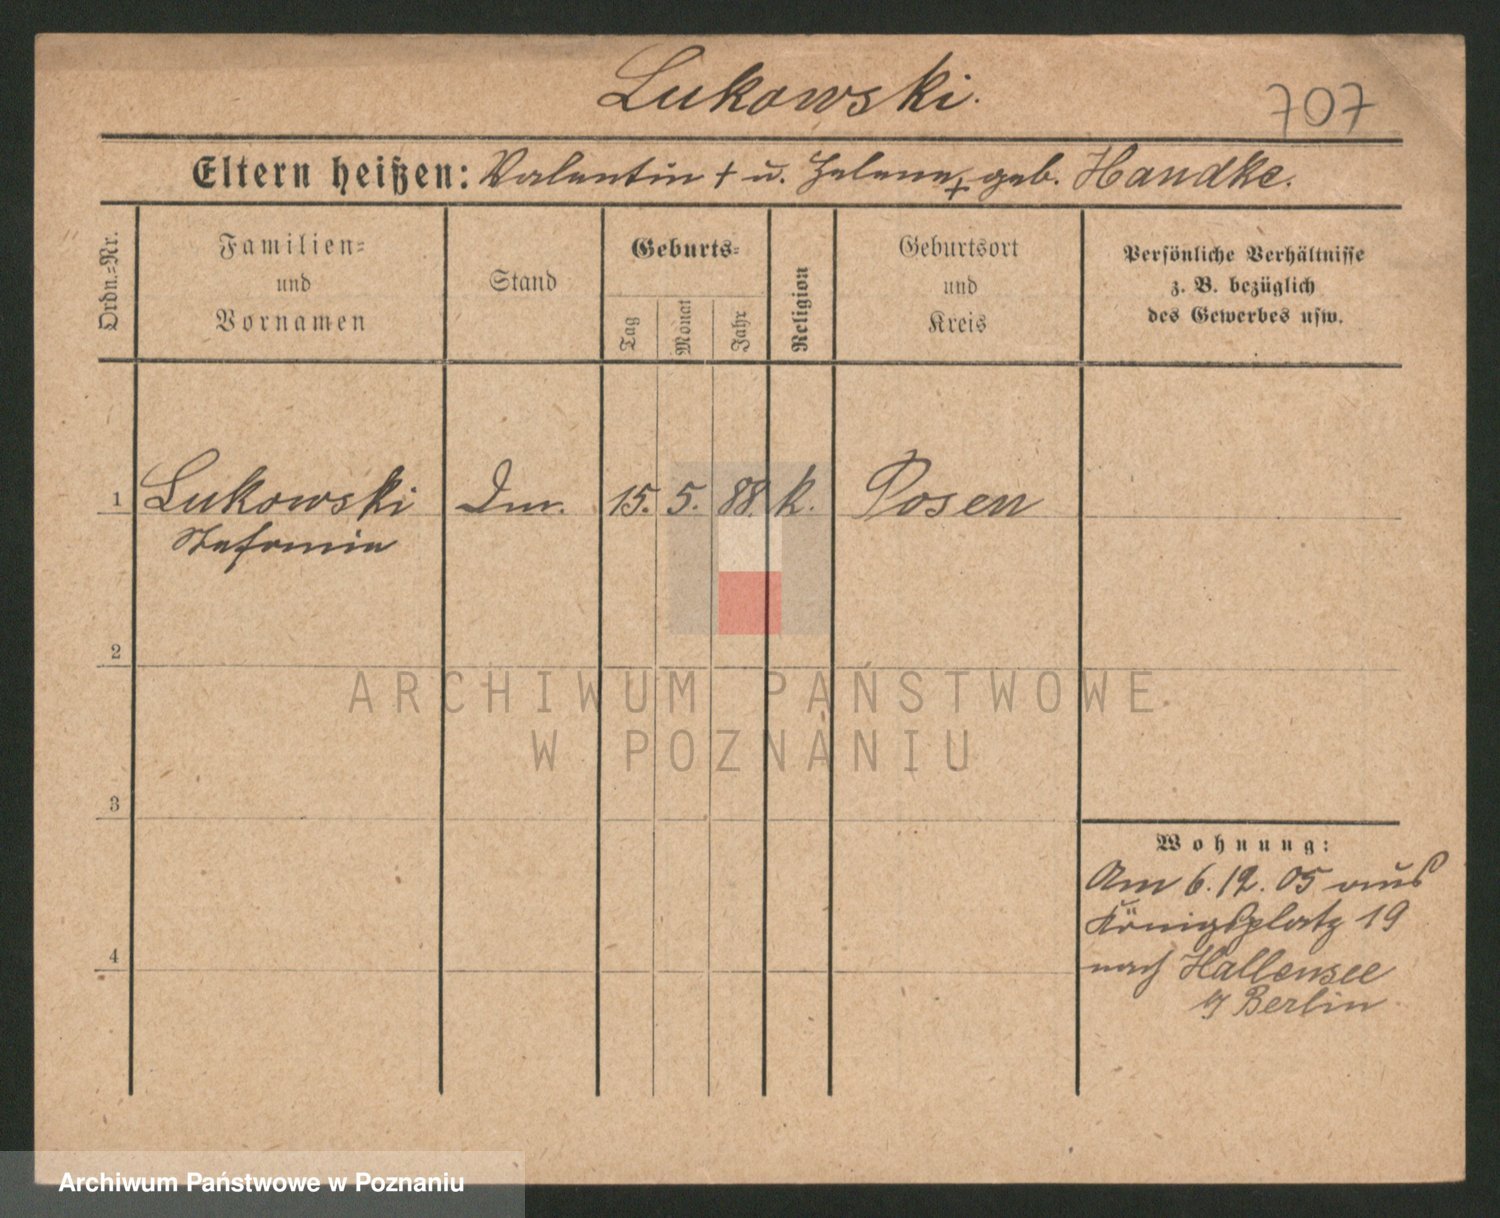 Lukowski.
707
Eltern heißen: Valentin + u. Helene + geb. Handke.
Ordn.=Nr.
Familien=
und
Vornamen
Stand
Geburts=
Tag
Monat
Jahr
Religion
Geburtsort
und
Kreis
Persönliche Verhältnisse
z. B. bezüglich
des Gewerbes usw.
1 Lukowski 15. 5. 88. k. Posen
Stefanie
2
3
4
Wohnung:
Am 6.12.05 aus
Königsplatz 19
nach Hallensee
Berlin
ARCHIWUM PAŃSTWOWE
W POZNANIU
Archiwum Państwowe w Poznaniu